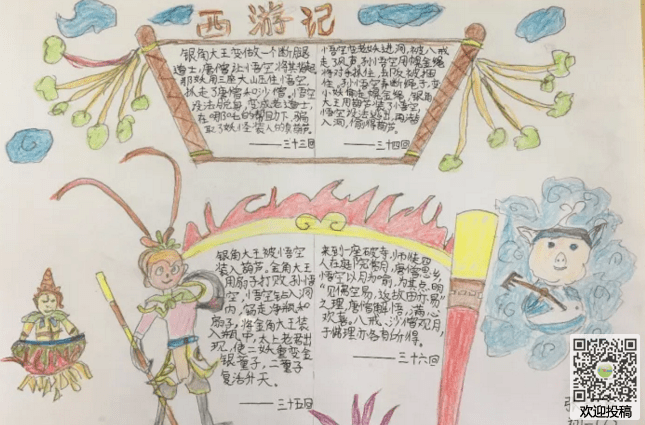 西游记
银角大王变做一个断腿
道士,唐僧让悟空将其背起
那妖用三座大山压住悟空,
抓走了唐僧和沙僧,悟空
没法脱身,变成老道士,
在哪吒的帮助下,骗
取了妖怪装人的
——三十三回
悟空变老妖进洞,被八戒
走了风声,孙
将对手
住,
小妖偷走幌金绳,银角
大王用葫芦装了悟空,
悟空设法逃出,再潜
入洞,偷得葫芦。
——三十四回
银角大王被悟空
装入葫芦。金角大王
用扇子打败孙悟
空,悟空钻入洞
内,窃走净瓶和
扇子,将金角大王装
入瓶中,太上老君出
现,使二妖重变金
银童子,二童子
复活升天。
——三十五回
来到一座破寺,师徒四
人在庭院赏月,唐僧思乡,
悟空以月为喻,为其点明
之理,唐僧解悟,满心
欢喜,八戒、沙僧观月,
于佛理亦各有所得。
——三十六回
欢迎投稿